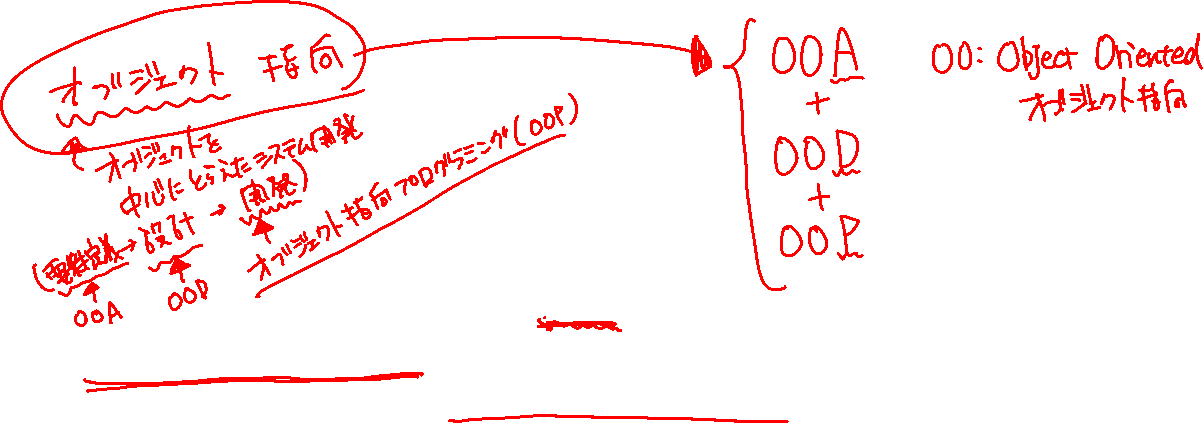 オブジェクト指向
オブジェクトを
中心にとらえたシステム開発
(要件定義→設計→開発)
OOA
OOD
オブジェクト指向プログラミング(OOP)
OOA
+
OOD
+
OOP
OO: Object Oriented
オブジェクト指向